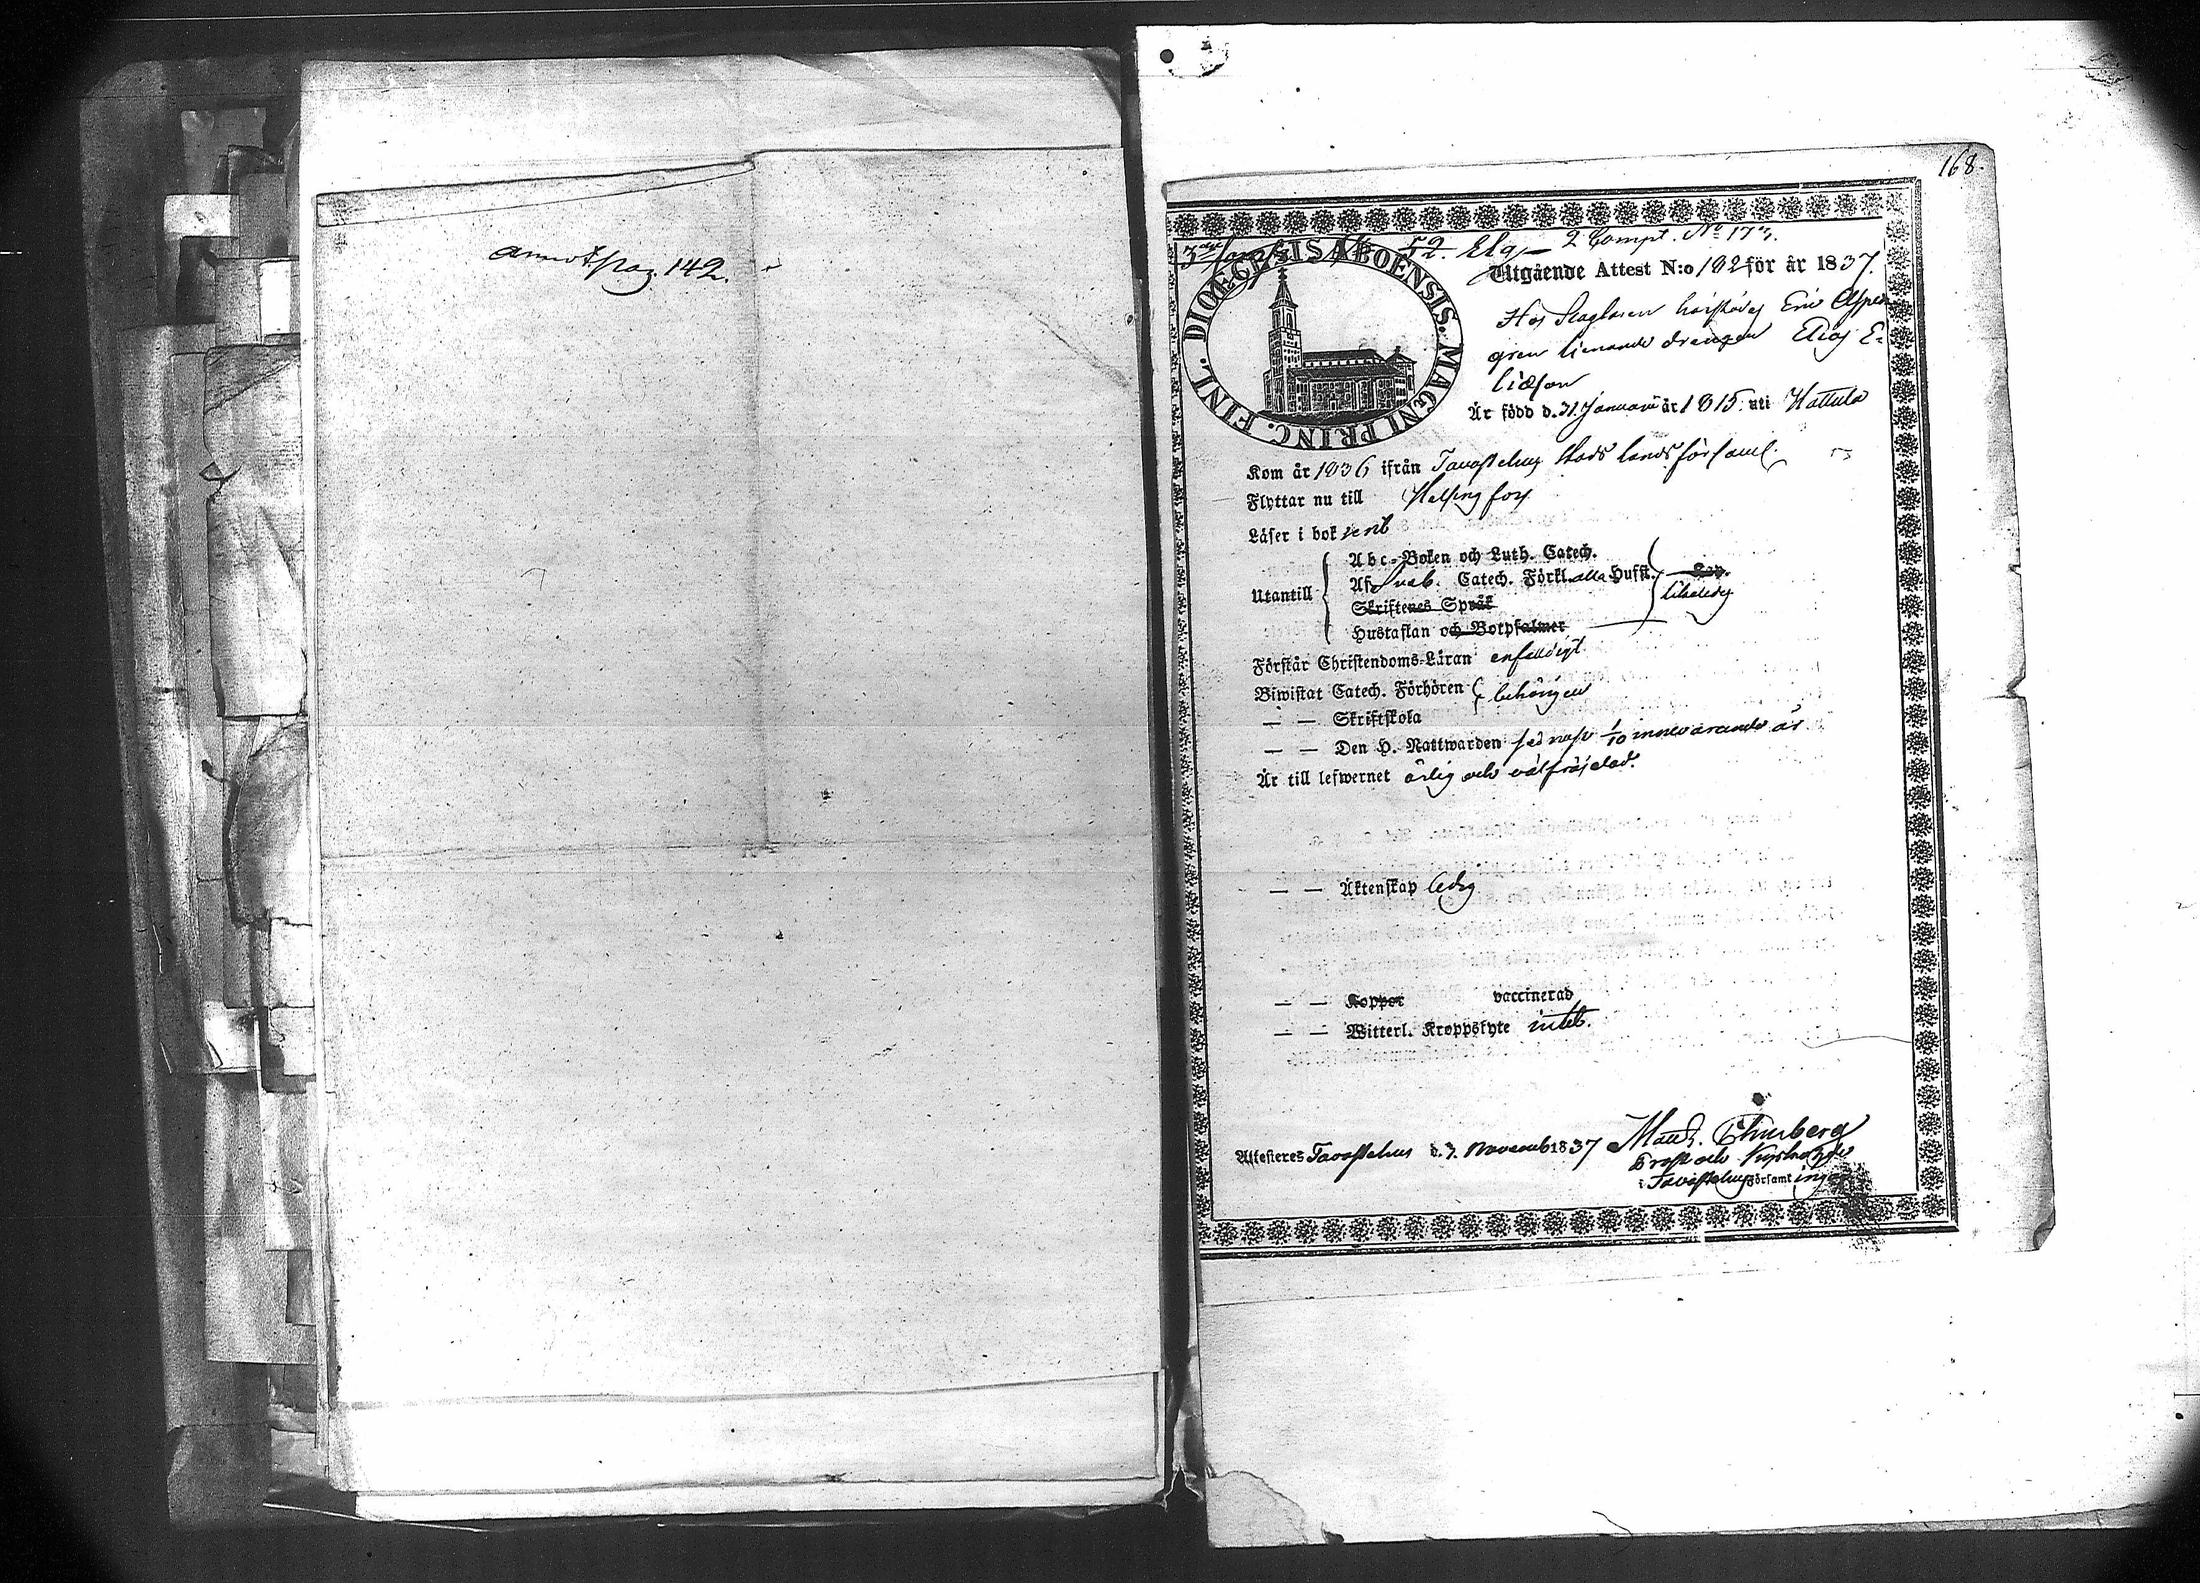 annot pag. 142.
168.
52. Elg 2 Compt. No 177.
DIOECESIS ABOENSIS. MAGNI PRINC. FINL.
Utgående Attest N:o 192 för år 1837.
Hos Slagtaren härstädes Eric Aspen
gren tienande drengen Elias E=
liæson
Är född d. 31 Januarii år 1815. uti Hattula
Kom år 1836 ifrån Tavastehus stads landsförsaml.
Flyttar nu till Helsingfors
Läser i bok rent
Abc-Boken och Luth. Catech.
Utantill Af Sveb. Catech. Förkl. alla Hufst. Cap.
likaledes
Skriftenes Språk
Hustaflan och Botpsalmer
Förstår Christendoms-Läran enfaldigt
Biwistat Catech. Förhören behörigen
— — Skriftskola
— — Den H. Nattwarden sednast 1/10 innevarande år
Är till lefwernet ärlig och välfräjdad.
— — Äktenskap ledig
— — Koppor vaccinerad
— — Witterl. Kroppslyte intet.
Attesteres Tavastehus d. 7. Novemb 1837 Matth. Thurberg
Prost och Kyrkoherde
i Tavastehus Församlingar